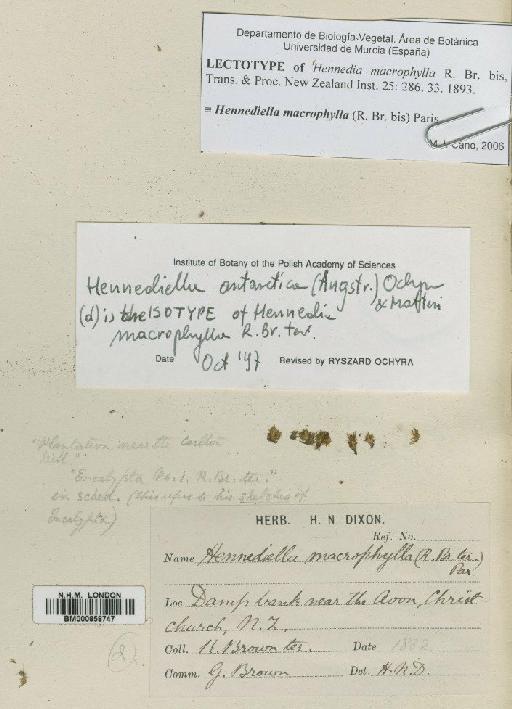 Departamento de Biología Vegetal, Área de Botánica
Universidad de Murcia (España)
LECTOTYPE of Hennedia macrophylla R. Br. bis,
Trans. & Proc. New Zealand Inst. 25: 286. 33. 1893.
≡ Hennediella macrophylla (R. Br. bis) Paris
Cano, 2006
Institute of Botany of the Polish Academy of Sciences
Hennediella antarctica (Angstr.) Ochyra
& Matteri
(d) is the ISOTYPE of Hennedia
macrophylla R. Br. ter.
Date Oct '97 Revised by RYSZARD OCHYRA
"Plantation near the Carlton
Mill"
"Encalypta No. 1, R. Br. ter."
in sched. (this refers to his sketches of
Encalypta)
HERB. H. N. DIXON.
Ref. No.
Name Hennediella macrophylla (R. Br. ter.)
Par
Loc. Damp bank near the Avon, Christ
church, N.Z.
Coll. R. Brown ter. Date 1882
Comm. G. Brown Det. H.N.D.
N.H.M. LONDON
BM000858747